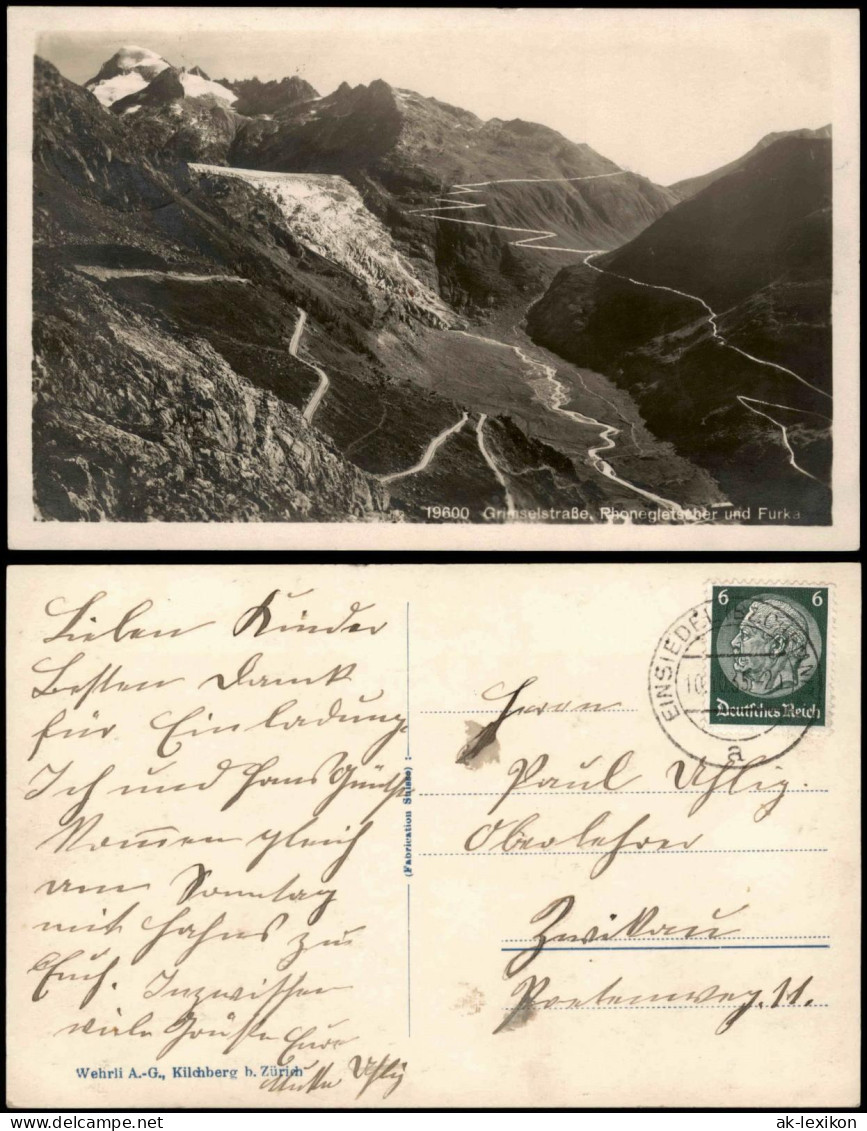 19600 Grimselstraße, Rhonegletscher und Furka
Lieben Kinder
Besten Dank
für Einladung.
Ich und Hans Günther
kommen gleich
am Sonntag
mit Hahns zu
Euch. Inzwischen
viele Grüße Eure
Mutter Uhlig
Wehrli A.-G., Kilchberg b. Zürich
(Fabrication Suisse)
EINSIEDEL
a
6 6
Deutsches Reich
Herrn
Paul Uhlig.
Oberlehrer
Zwikau
Poetenweg. 11.
ak-lexikon